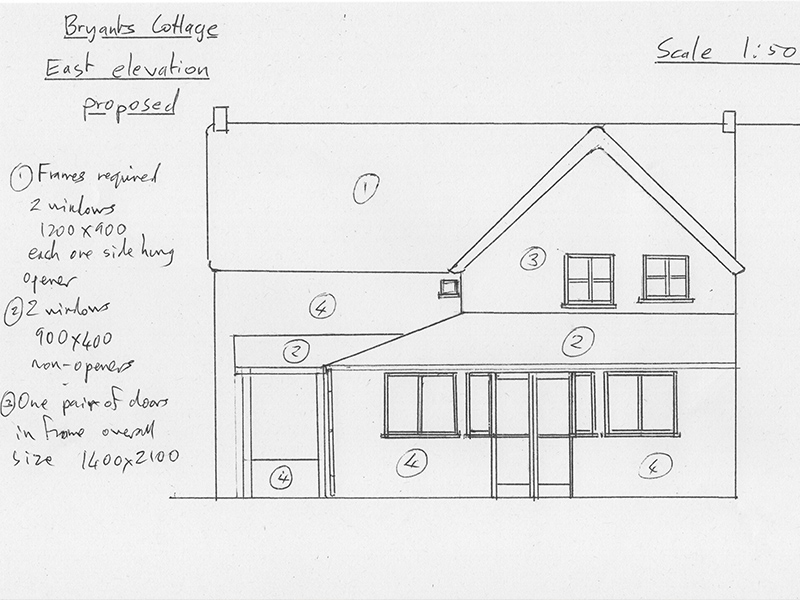 Bryants Cottage
East elevation
proposed
Scale 1:50
① Frames required
2 windows
1200 x 900
each one side hung
opener
② 2 windows
900 x 400
non-openers
③ One pair of doors
in frame overall
size 1400 x 2100
①
③
④
②
②
④
④
④